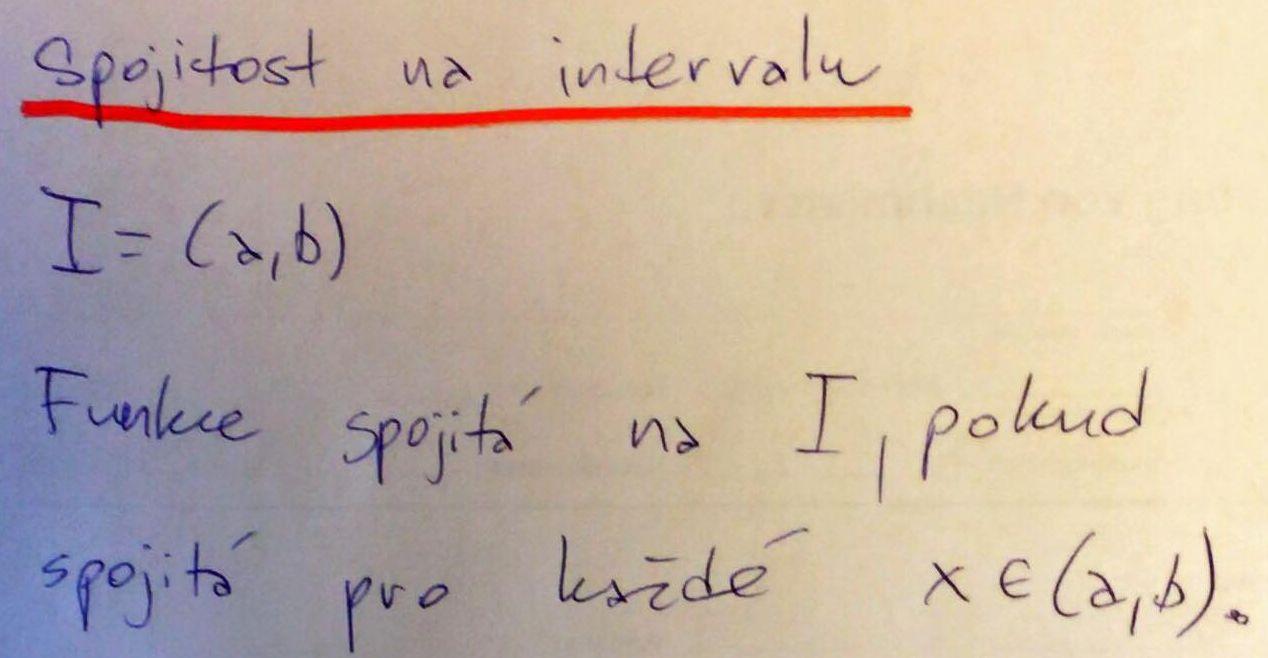 Spojitost na intervalu
I = (a, b)
Funkce spojitá na I, pokud
spojitá pro každé x ∈ (a, b).